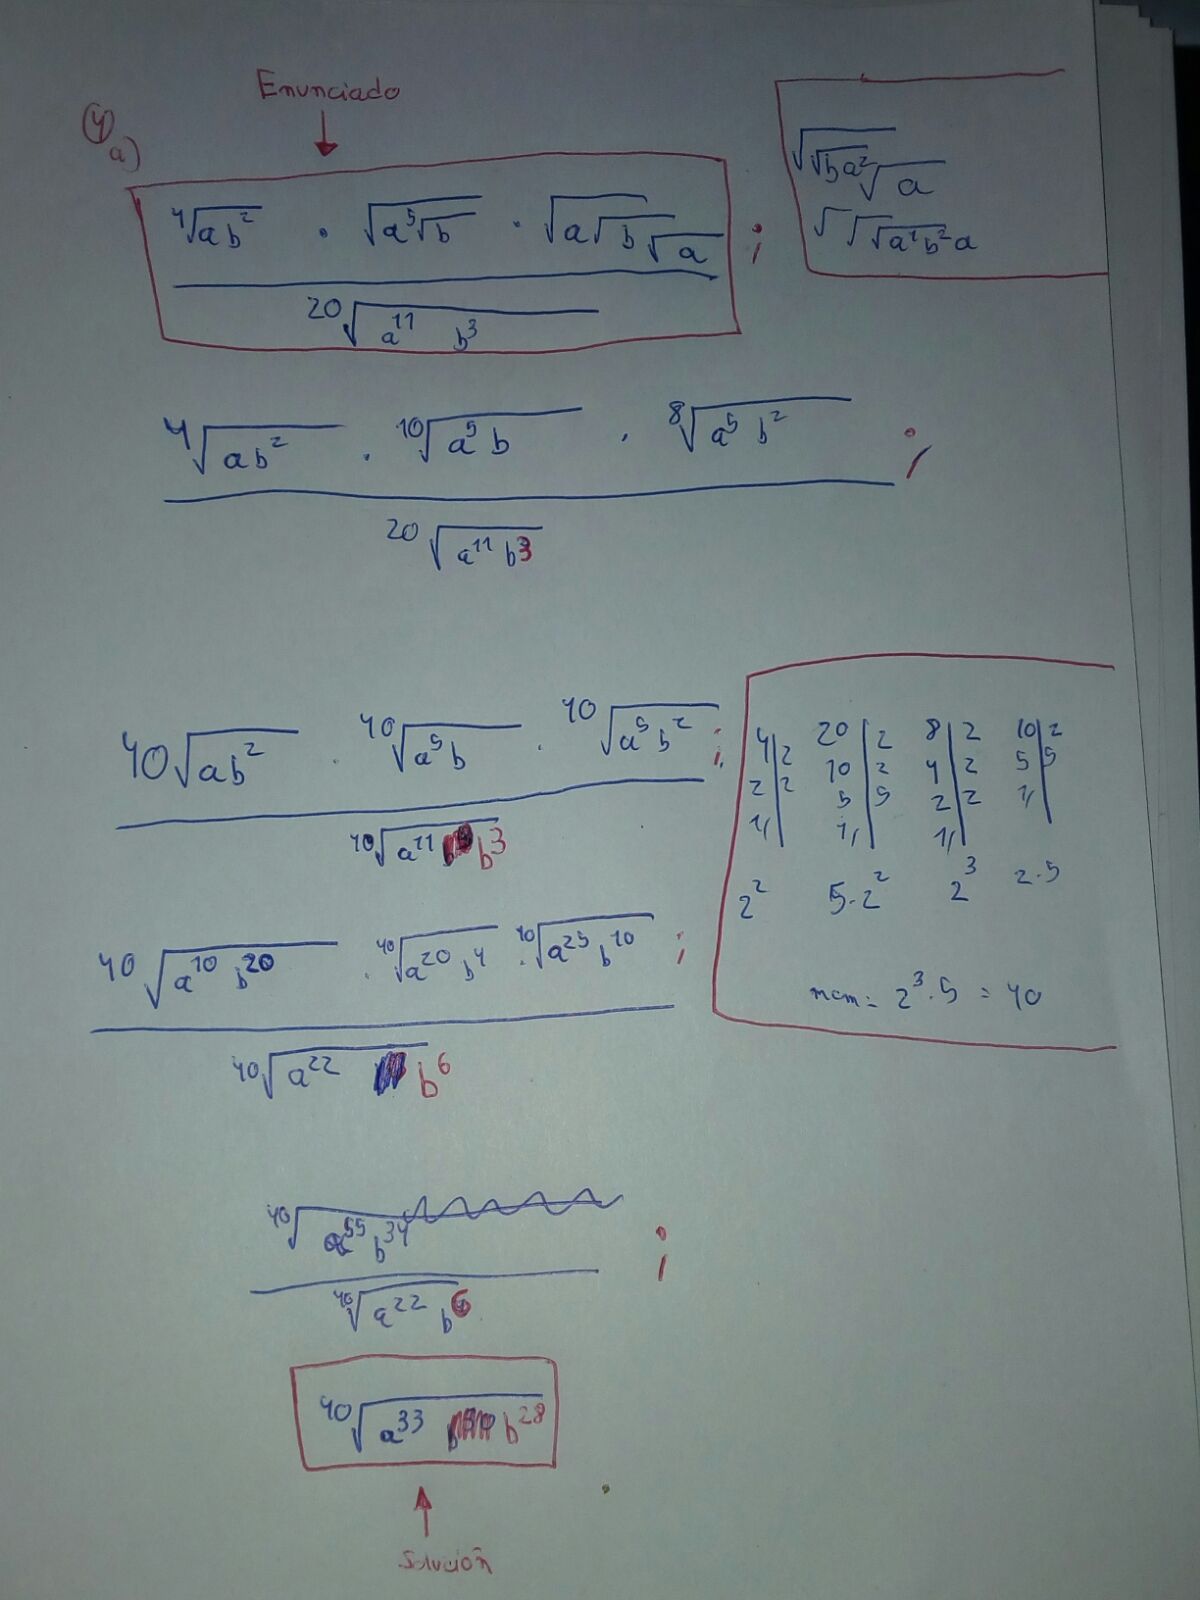 Enunciado
4
a)
⁴√ab² · √a⁵√b · √a√b√a ;
²⁰√a¹¹ b³
√√ba² √a
√√√a²b²a
⁴√ab² · ¹⁰√a⁵b · ⁸√a⁵b² ;
²⁰√a¹¹b³
⁴⁰√ab² · ⁴⁰√a⁵b · ⁴⁰√a⁵b² ;
⁴⁰√a¹¹ b³
4|2 20|2 8|2 10|2
2|2 10|2 4|2 5|5
1/| 5|5 2|2 1/|
1/| 1/|
2² 5·2² 2³ 2·5
mcm = 2³·5 = 40
⁴⁰√a¹⁰b²⁰ · ⁴⁰√a²⁰b⁴ · ⁴⁰√a²⁵b¹⁰ ;
⁴⁰√a²² b⁶
⁴⁰√a⁵⁵b³⁴ ;
⁴⁰√a²² b⁶
⁴⁰√a³³ b²⁸
Solución